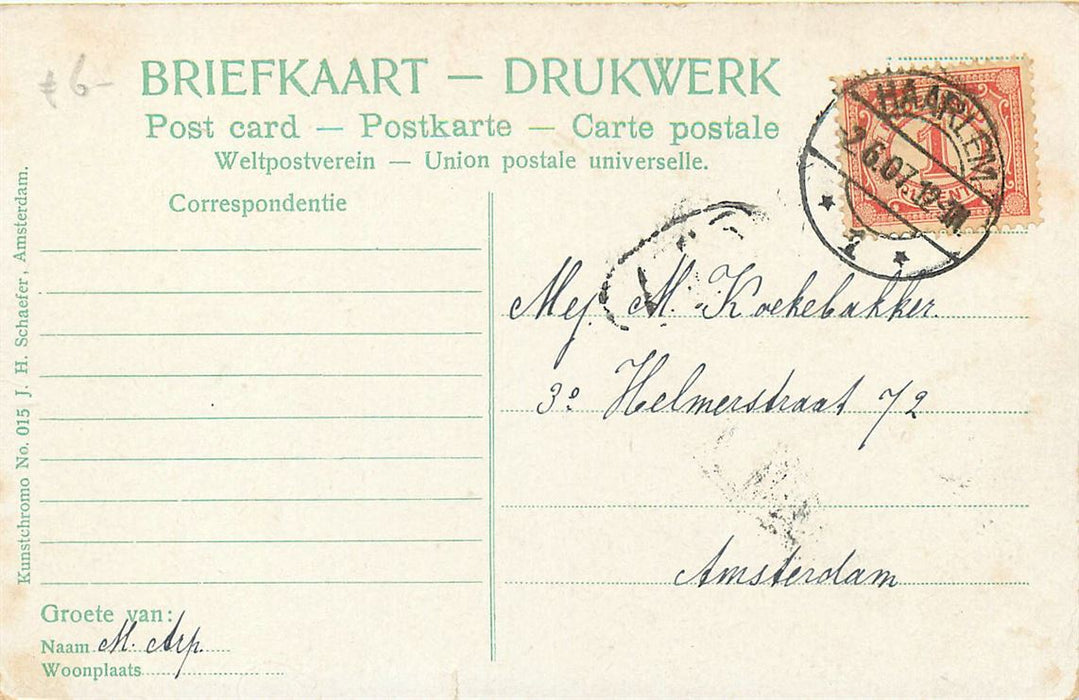 BRIEFKAART — DRUKWERK
Post card — Postkarte — Carte postale
Weltpostverein — Union postale universelle.
Correspondentie
HAARLEM
2.6.07
1
CENT
Mej. M. Koekebakker
3e Helmerstraat 72
Amsterdam
Groete van:
Naam M. Arp.
Woonplaats
Kunstchromo No. 015 J. H. Schaefer, Amsterdam.